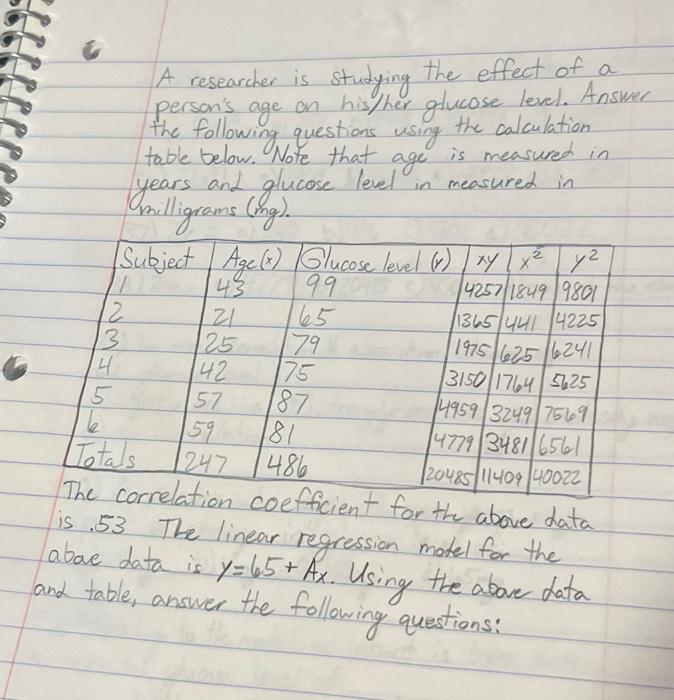 A researcher is studying the effect of a
person's age on his/her glucose level. Answer
the following questions using the calculation
table below. Note that age is measured in
years and glucose level in measured in
milligrams (mg).
Subject Age (x) Glucose level (y) xy x² y²
1 43 99 4257 1849 9801
2 21 65 1365 441 4225
3 25 79 1975 625 6241
4 42 75 3150 1764 5625
5 57 87 4959 3249 7569
6 59 81 4779 3481 6561
Totals 247 486 20485 11409 40022
The correlation coefficient for the above data
is .53 The linear regression model for the
above data is y=65+Ax. Using the above data
and table, answer the following questions: